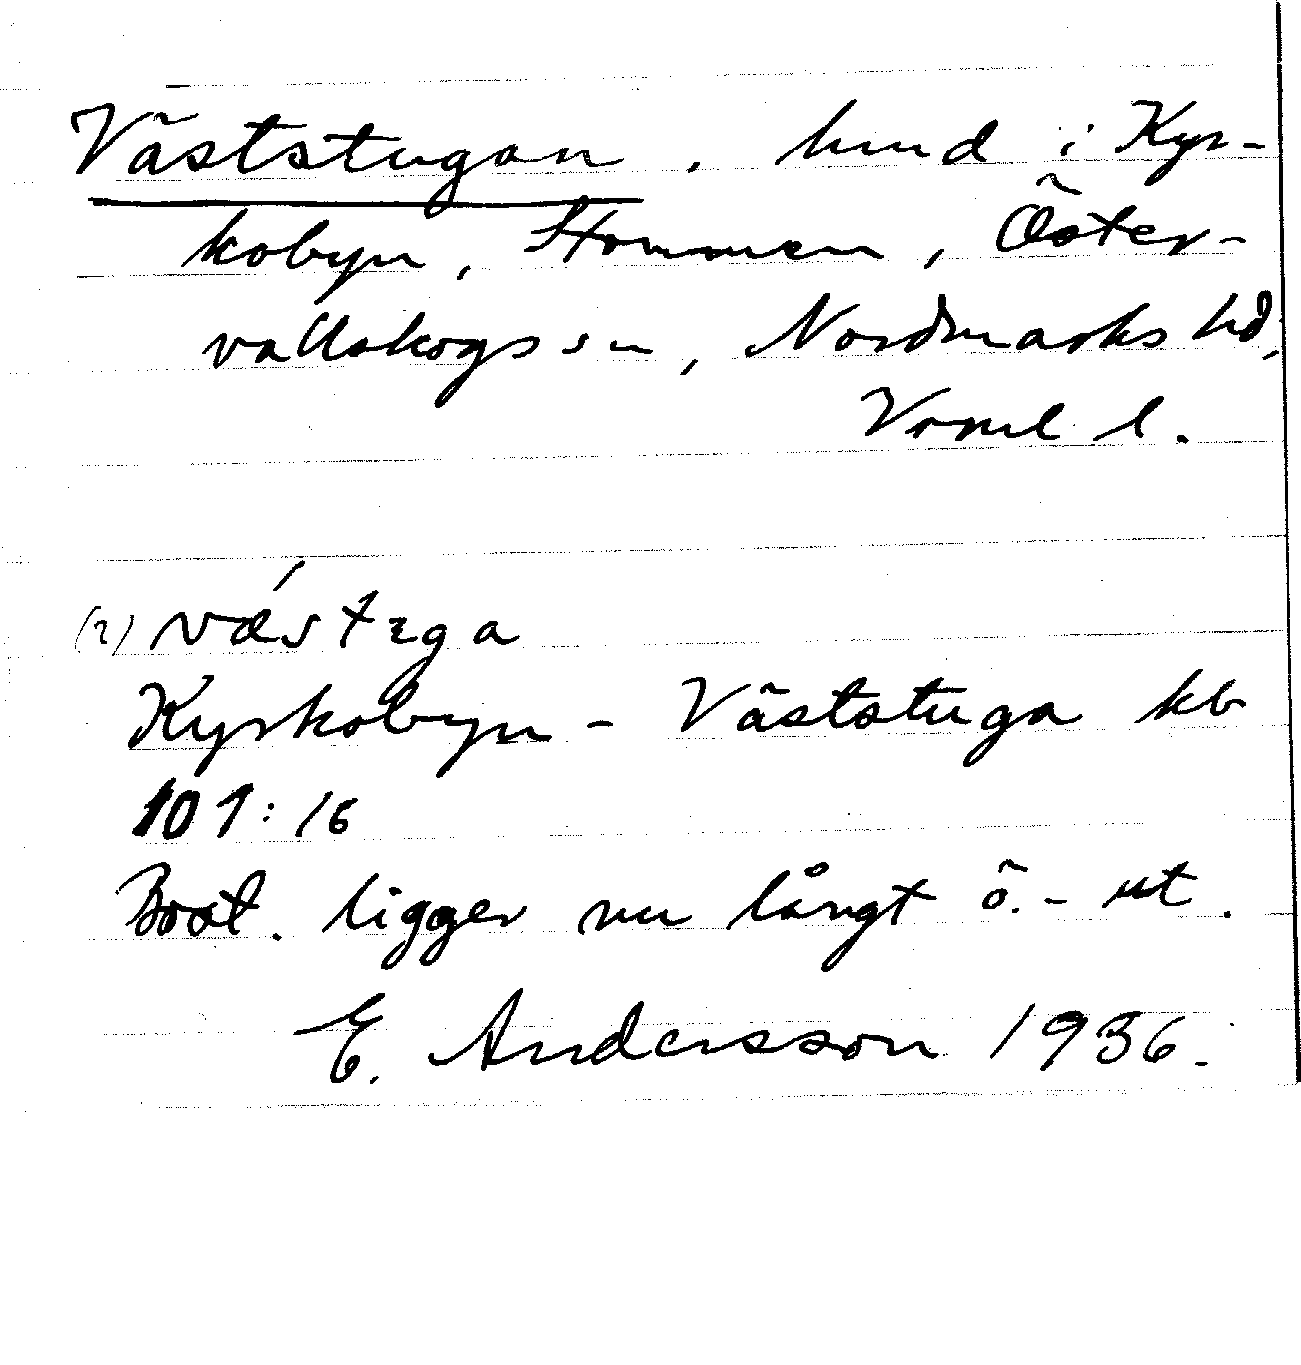 Väststugan, hmd i Kyr-
kobyn, Stommen, Öster-
vallskogs sn, Nordmarks hd,
Vrml l.
(2) væstɛga
Kyrkobyn - Väststuga kb
101:16
Bost. ligger nu långt ö.-ut.
E. Andersson 1936.